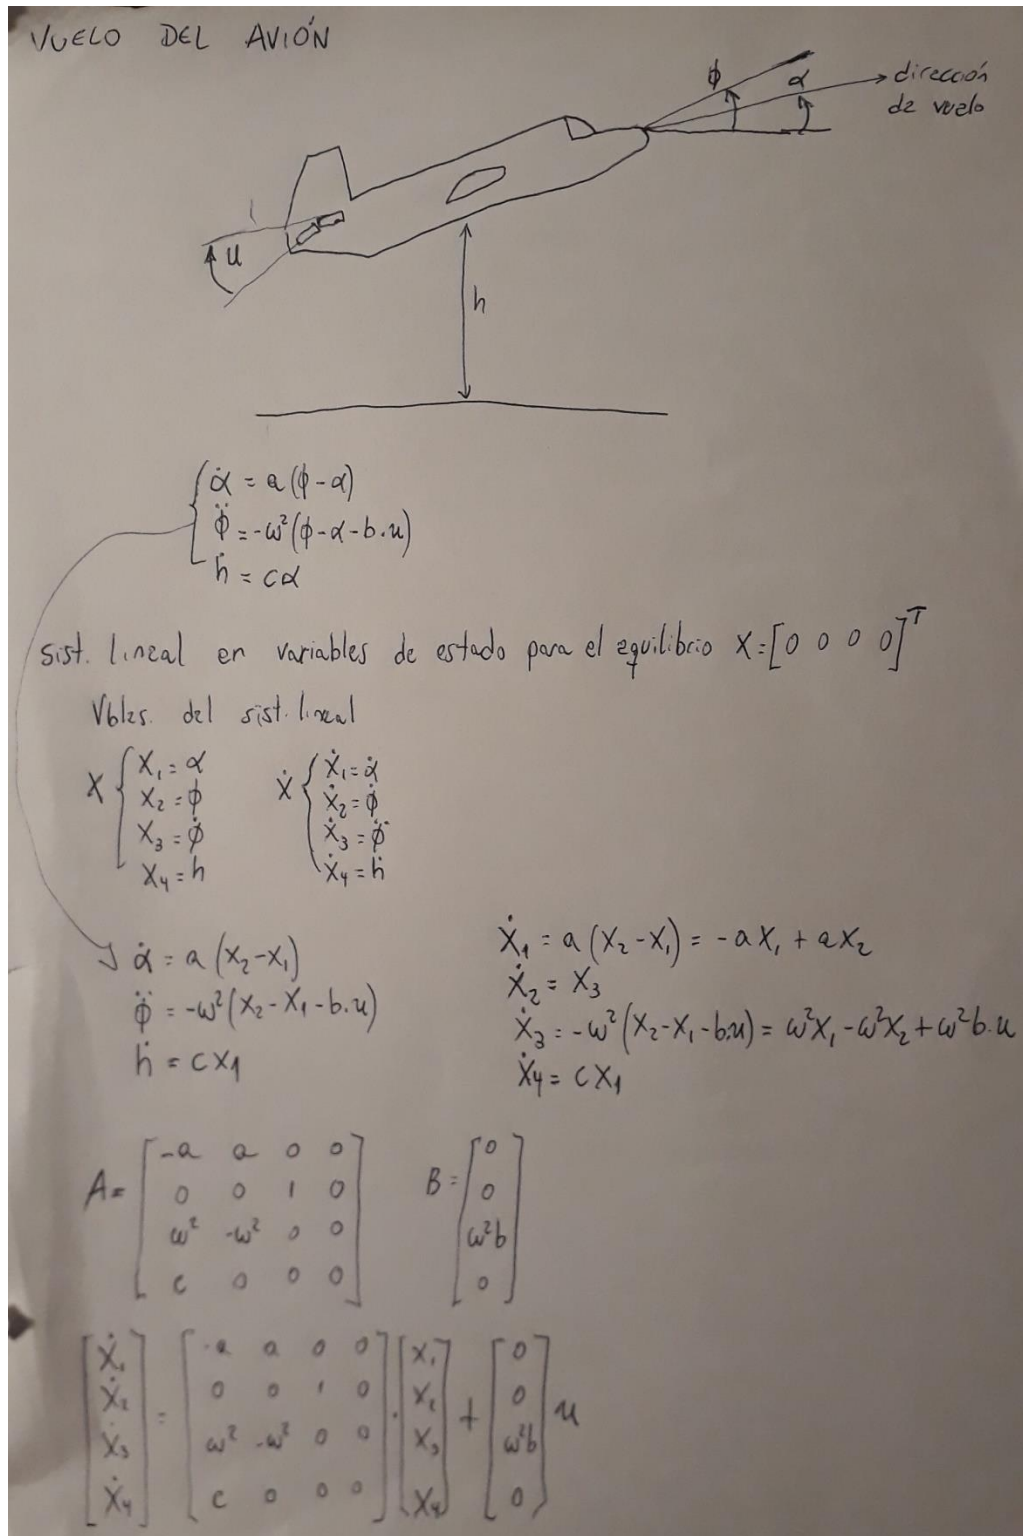 VUELO DEL AVIÓN
ϕ α dirección
de vuelo
u
h
α̇ = a(ϕ-α)
ϕ̈ = -ω²(ϕ-α-b.u)
ḣ = cα
sist. lineal en variables de estado para el equilibrio X=[0 0 0 0]ᵀ
Vbles. del sist. lineal
X { X₁ = α
X₂ = ϕ
X₃ = ϕ̇
X₄ = h
Ẋ { Ẋ₁ = α̇
Ẋ₂ = ϕ̇
Ẋ₃ = ϕ̈
Ẋ₄ = ḣ
α̇ = a(X₂-X₁)
ϕ̈ = -ω²(X₂-X₁-b.u)
ḣ = cX₁
Ẋ₁ = a(X₂-X₁) = -aX₁ + aX₂
Ẋ₂ = X₃
Ẋ₃ = -ω²(X₂-X₁-b.u) = ω²X₁-ω²X₂+ω²b.u
Ẋ₄ = cX₁
A= [-a a 0 0
0 0 1 0
ω² -ω² 0 0
c 0 0 0]
B= [0
0
ω²b
0]
[Ẋ₁ = [-a a 0 0 . [X₁ + [0 u
Ẋ₂ 0 0 1 0 X₂ 0
Ẋ₃ ω² -ω² 0 0 X₃ ω²b
Ẋ₄] c 0 0 0] X₄] 0]